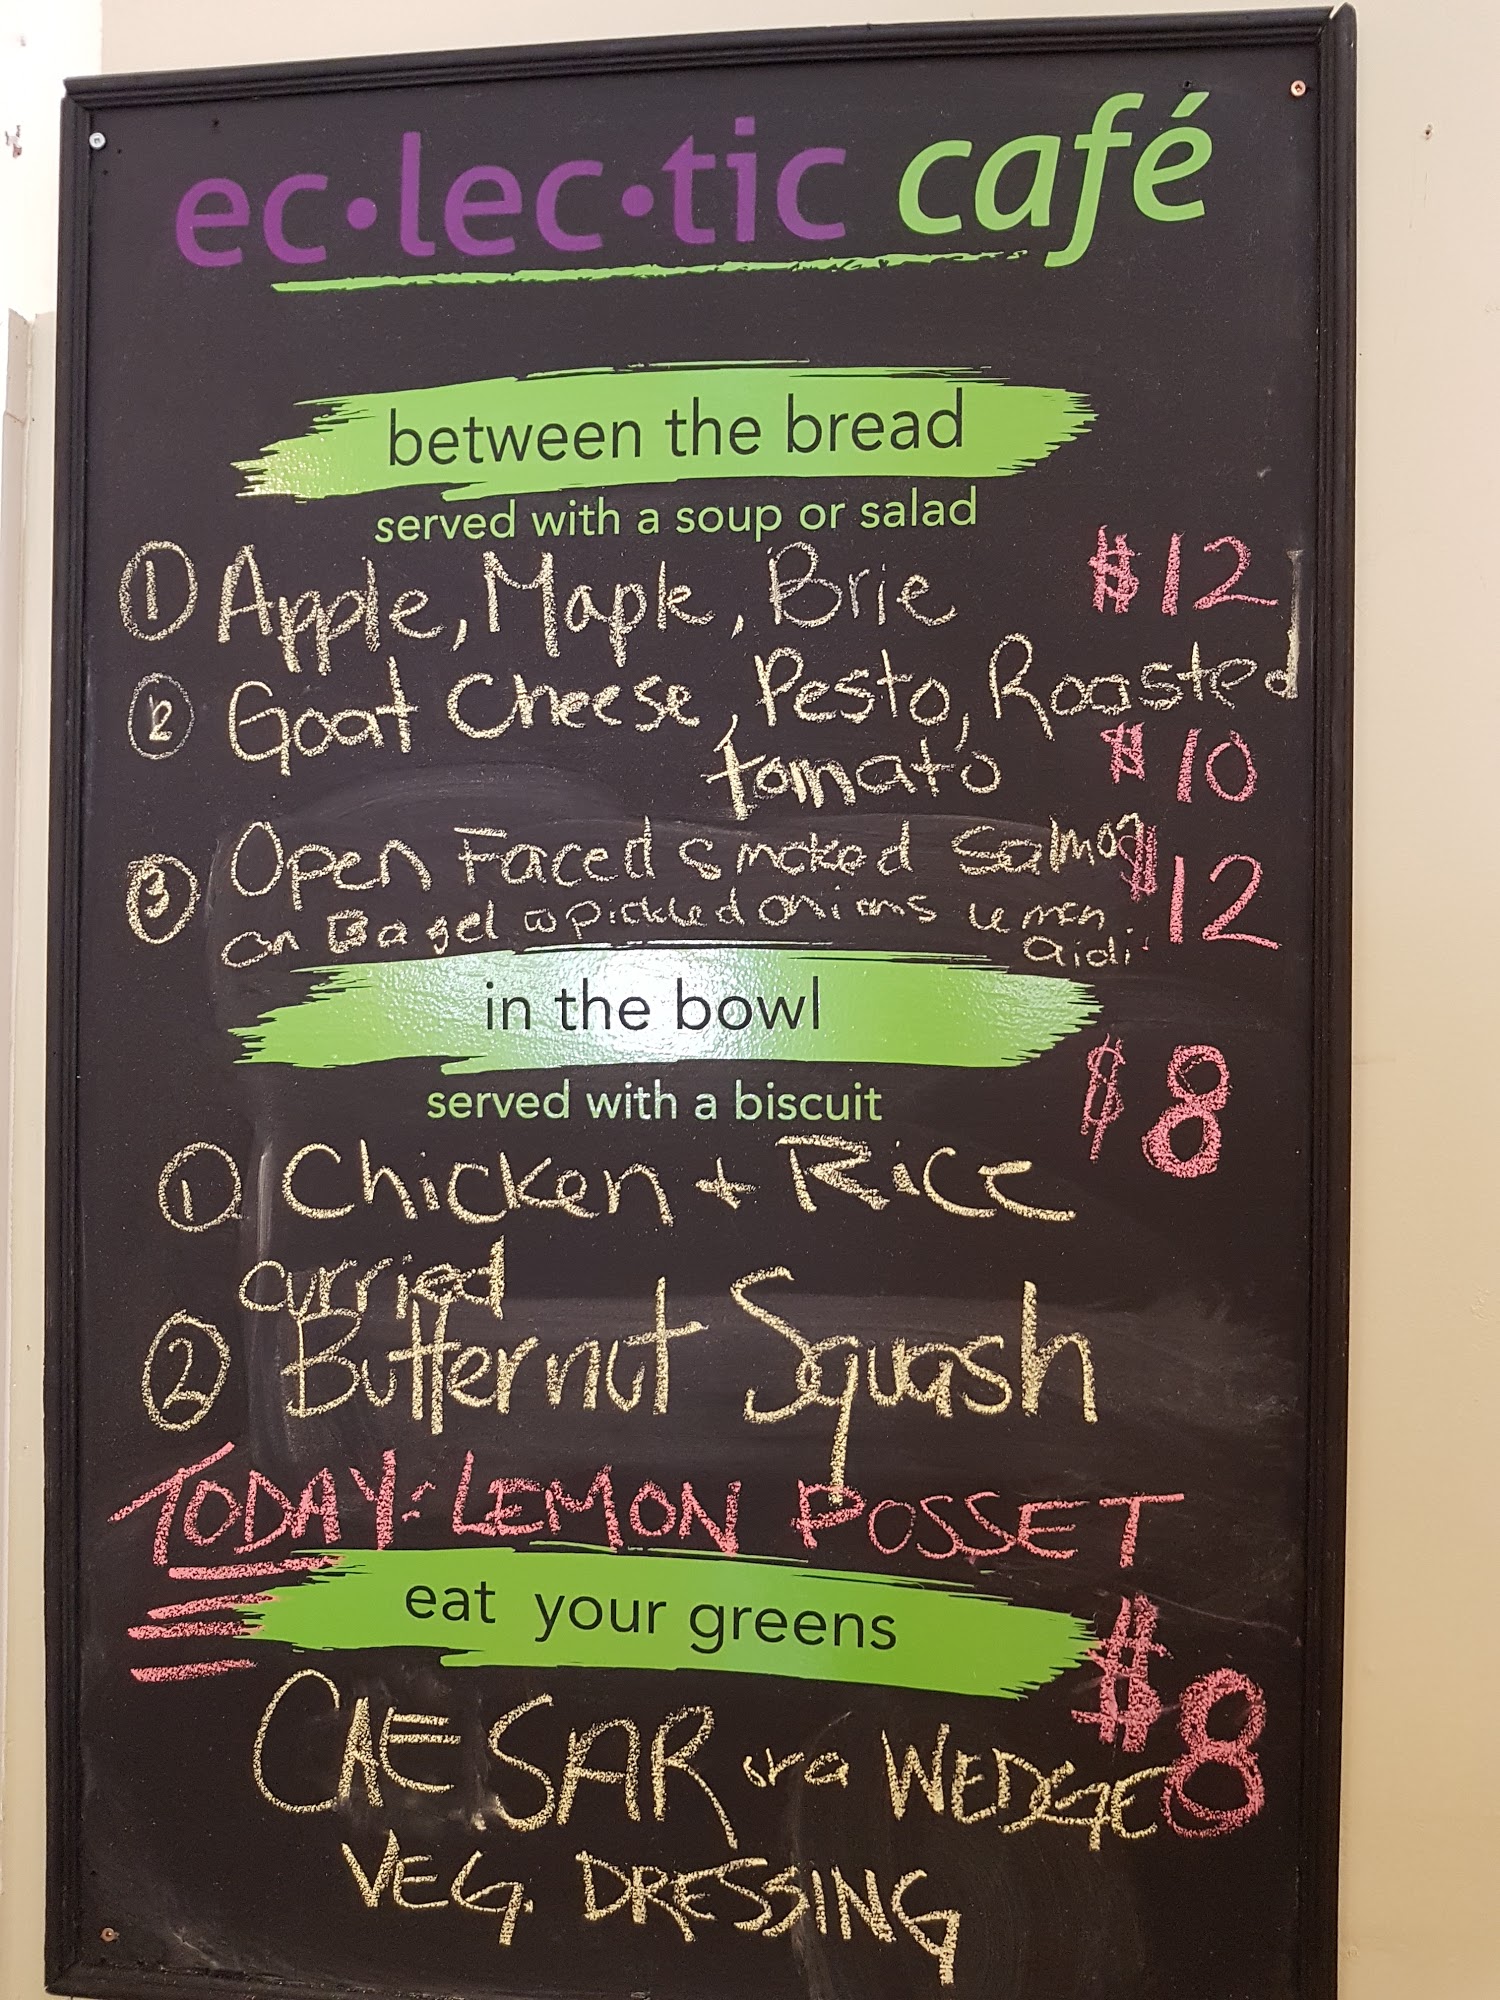 ec•lec•tic café
between the bread
served with a soup or salad
① Apple, Maple, Brie $12
② Goat Cheese, Pesto, Roasted
tomato $10
③ Open Faced Smoked Salmon $12
on Bagel w pickled onions lemon
aioli
in the bowl
served with a biscuit $8
① Chicken + Rice
curried
② Butternut Squash
TODAY: LEMON POSSET
eat your greens $8
CAESAR or a WEDGE
VEG. DRESSING